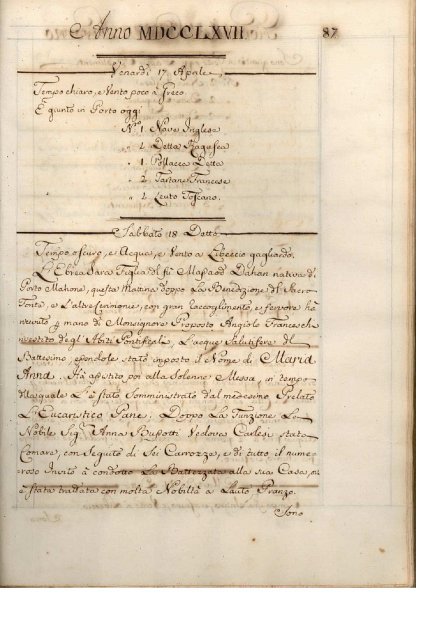 Anno MDCCLXVII 87
Venardi 17 Aprile
Tempo chiaro, e Vento poco à Greco.
È giunto in Porto oggi
N.º 1 Nave Inglese
" 2 Detta Ragusea
" 1 Pollacca Detta
" 2 Tartane Francese
" 2 Leuto Toscano.
Sabbato 18 Detto
Tempo oscuro, e Acqua, e Vento a Libeccio gagliardo.
L'Ebrea Sara Figlia del fù Massaod Dahan nativa di
Porto Mahone, questa Matina doppo La Benedizione del Sacro
Fonte, e L'altre Cerimonie, con gran raccoglimento, e fervore hà
ricevuto p mano di Monsignore Proposto Angiolo Franceschi
investito degl'Abiti Pontificali, L'acque Salutifere del
Battesimo, essendole stato imposto il Nome di Maria
Anna. Hà assistito poi alla Solenne Messa, in tempo
della quale L'è stato Somministrato dal medesimo Prelato
L'Eucaristico Pane. Doppo La Funzione La
Nobile Sig.ra Anna Bussotti Vedova Carlesi stata
Comare, con Seguito di Sei Carrozze, e di tutto il nume-
roso Invito à condotto La Battezzata alla sua Casa, ove
è stata trattata con molta Nobiltà à Lauto Pranzo.
Sono